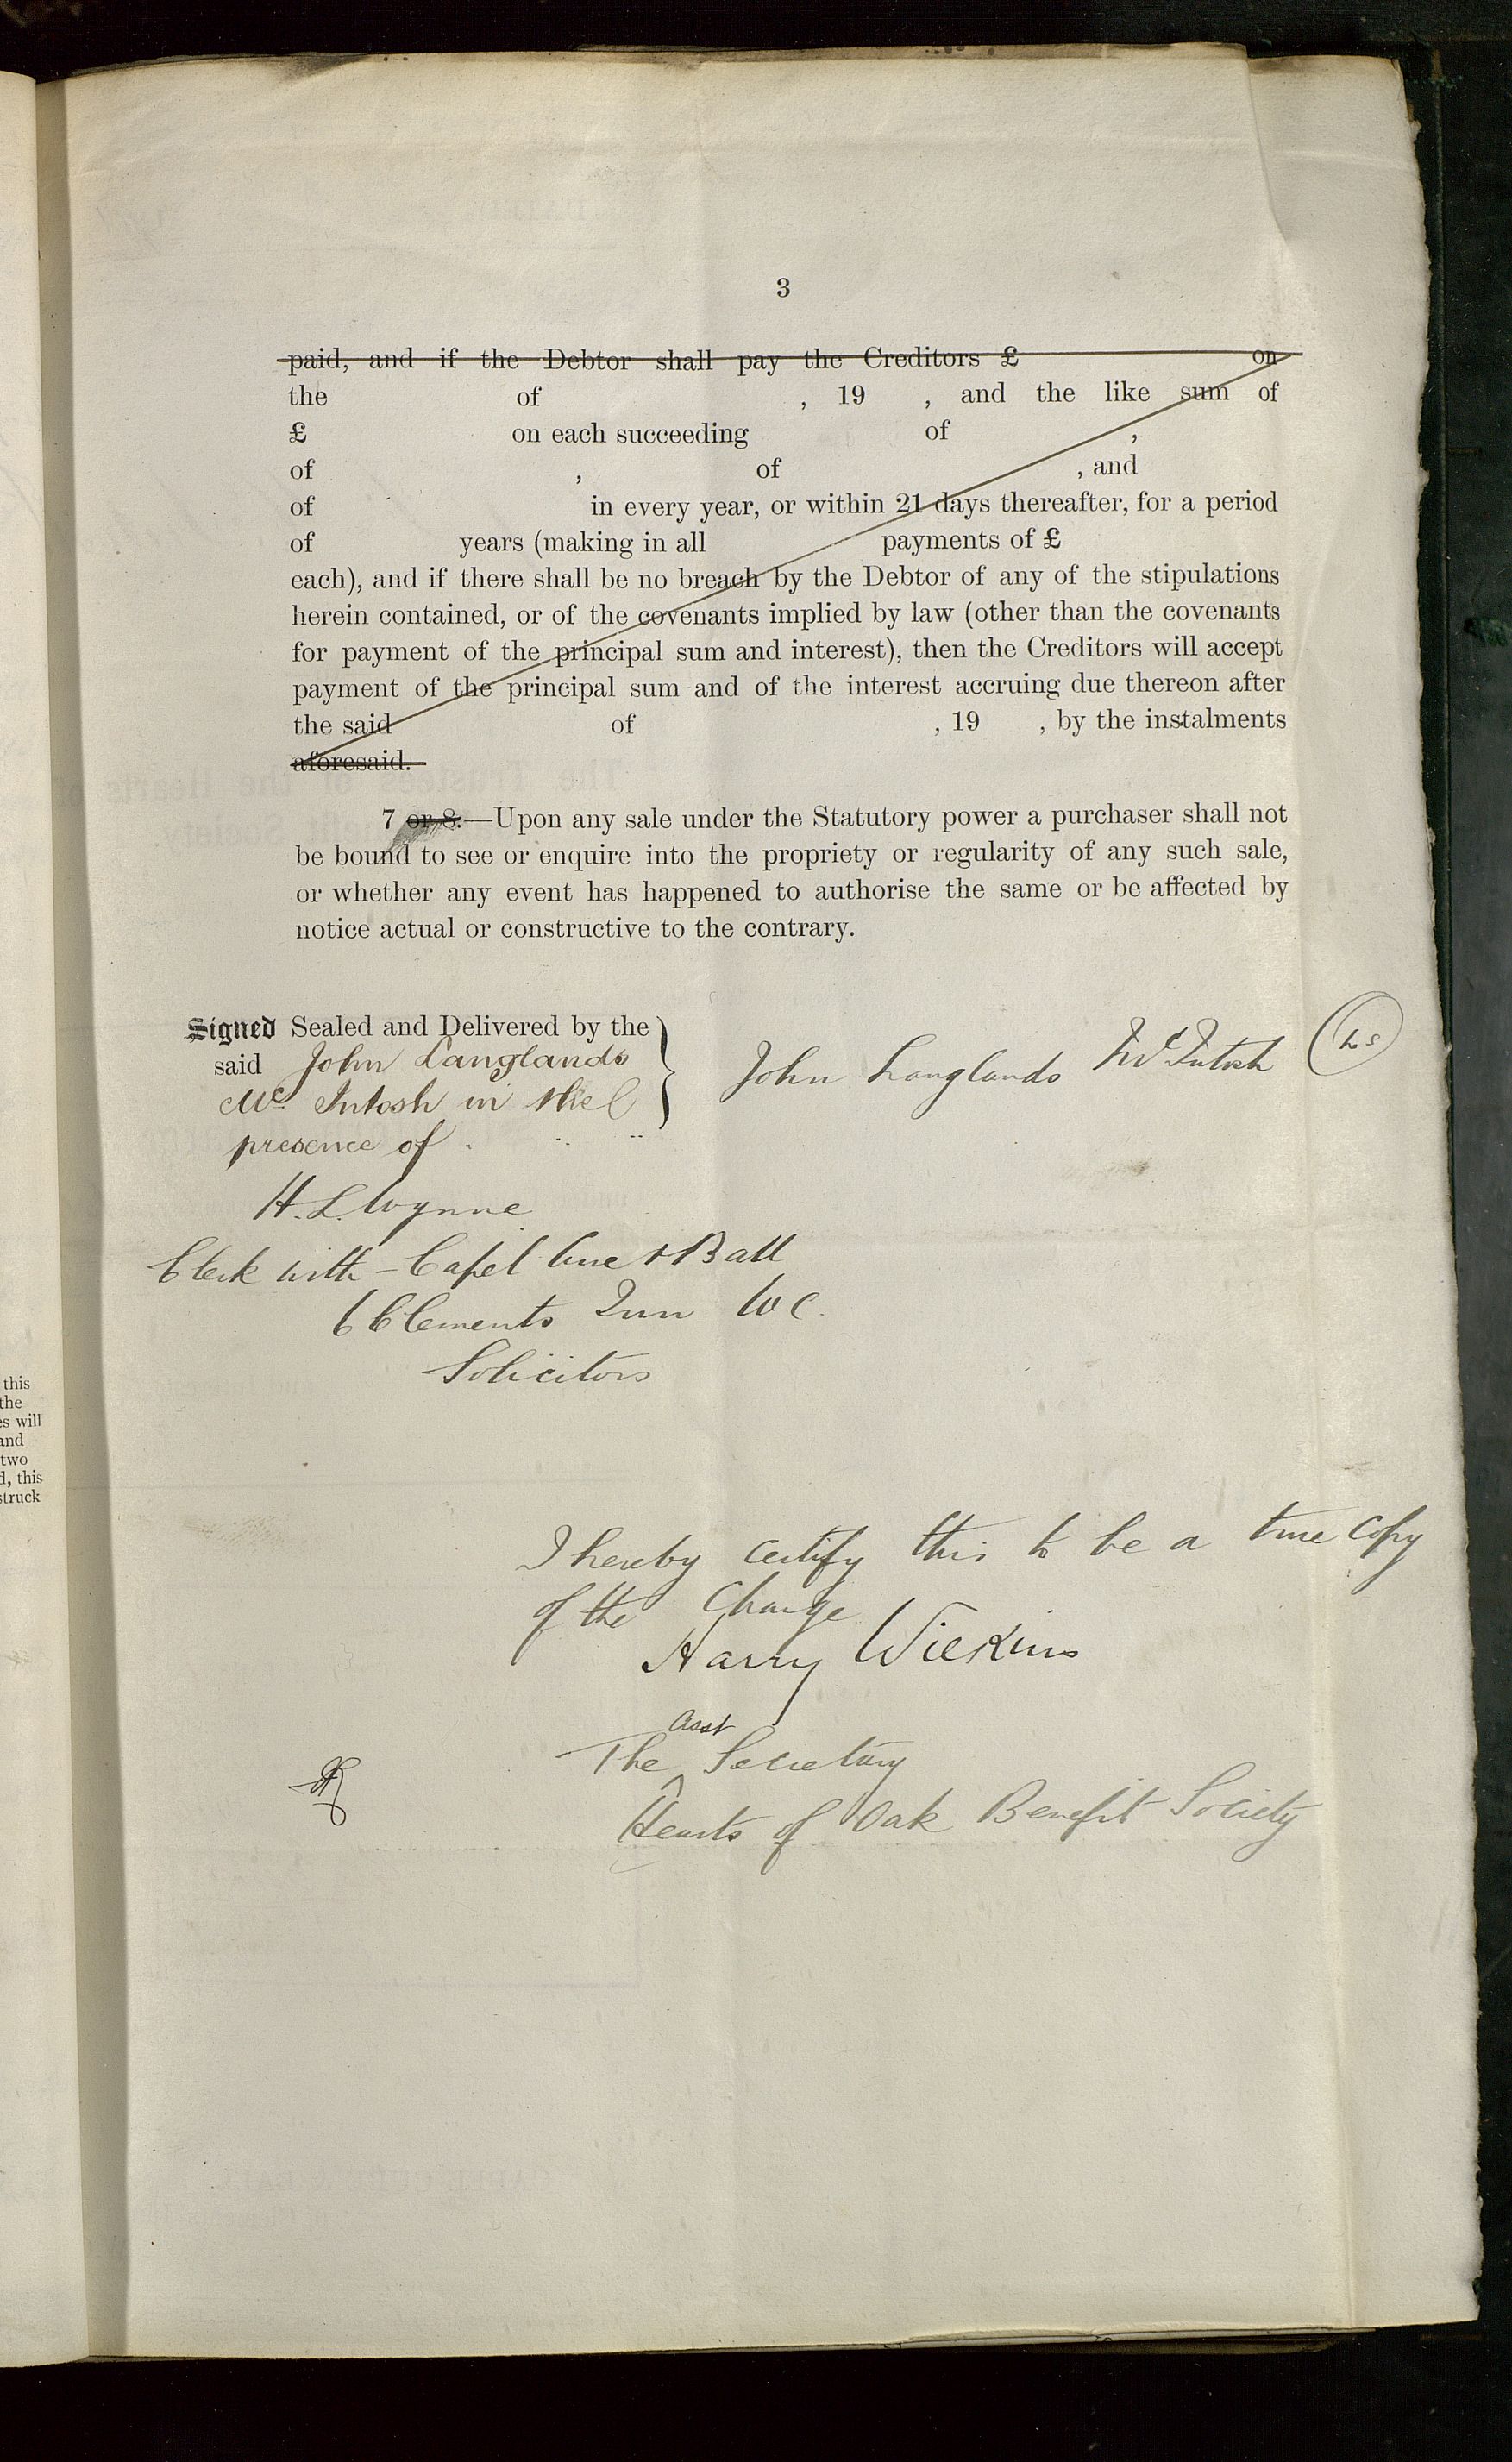 3
paid, and if the Debtor shall pay the Creditors £ on
the of , 19 , and the like sum of
£ on each succeeding of ,
of , of , and
of in every year, or within 21 days thereafter, for a period
of years (making in all payments of £
each), and if there shall be no breach by the Debtor of any of the stipulations
herein contained, or of the covenants implied by law (other than the covenants
for payment of the principal sum and interest), then the Creditors will accept
payment of the principal sum and of the interest accruing due thereon after
the said of , 19 , by the instalments
aforesaid.
7 or 8.—Upon any sale under the Statutory power a purchaser shall not
be bound to see or enquire into the propriety or regularity of any such sale,
or whether any event has happened to authorise the same or be affected by
notice actual or constructive to the contrary.
Signed Sealed and Delivered by the
said John Langlands
Mc Intosh in the
presence of
John Langlands McIntosh L S
H. L. Wynne
Clerk with Capel Cure & Ball
6 Clements Inn WC.
Solicitors
this
the
es will
and
two
d, this
struck
I hereby certify this to be a true copy
of the Charge
Harry Wilkins
asst
The Secretary
Hearts of Oak Benefit Society